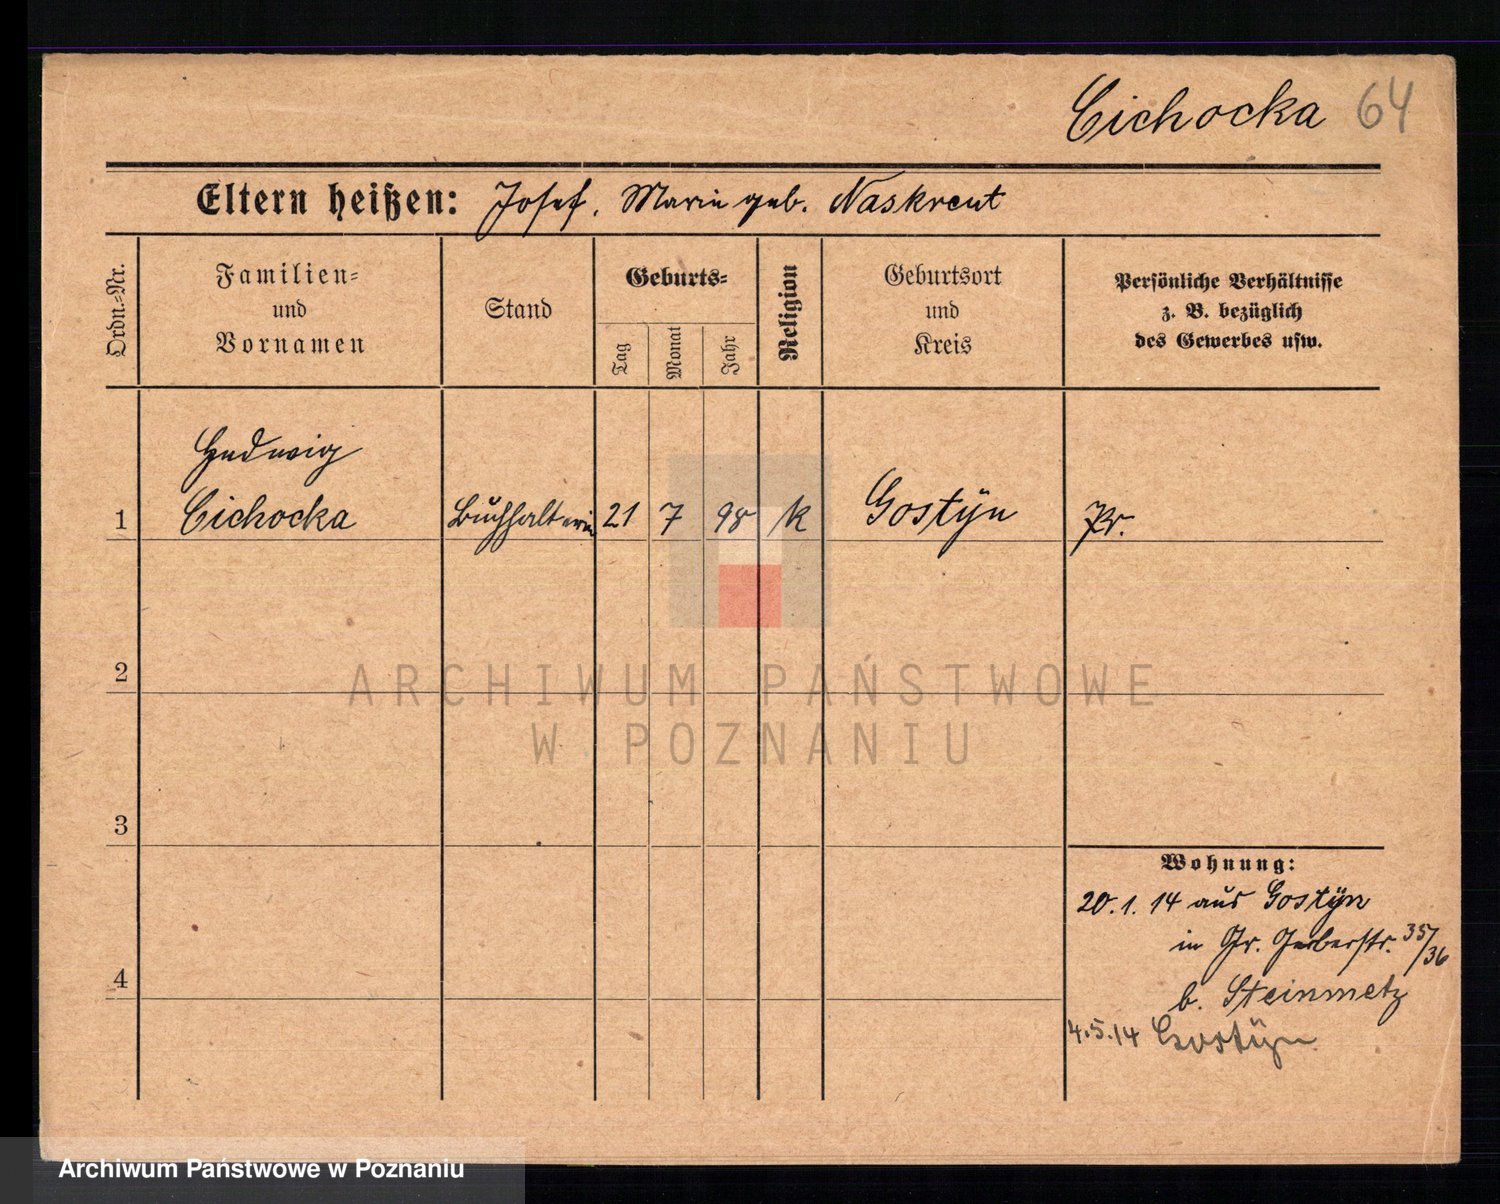 Cichocka 64
Eltern heißen: Josef, Marie geb. Naskrent
Ordn.-Nr.
Familien-
und
Vornamen
Stand
Geburts-
Tag
Monat
Jahr
Religion
Geburtsort
und
Kreis
Persönliche Verhältnisse
z. B. bezüglich
des Gewerbes usw.
Hedwig
1 Cichocka Buchhalterin 21 7 98 k Gostÿn Pr.
2
ARCHIWUM PAŃSTWOWE
W POZNANIU
3
Wohnung:
20.1.14 aus Gostÿn
in Gr. Gerberstr. 35/36
4
b. Steinmetz
4.5.14 Gostÿn
Archiwum Państwowe w Poznaniu